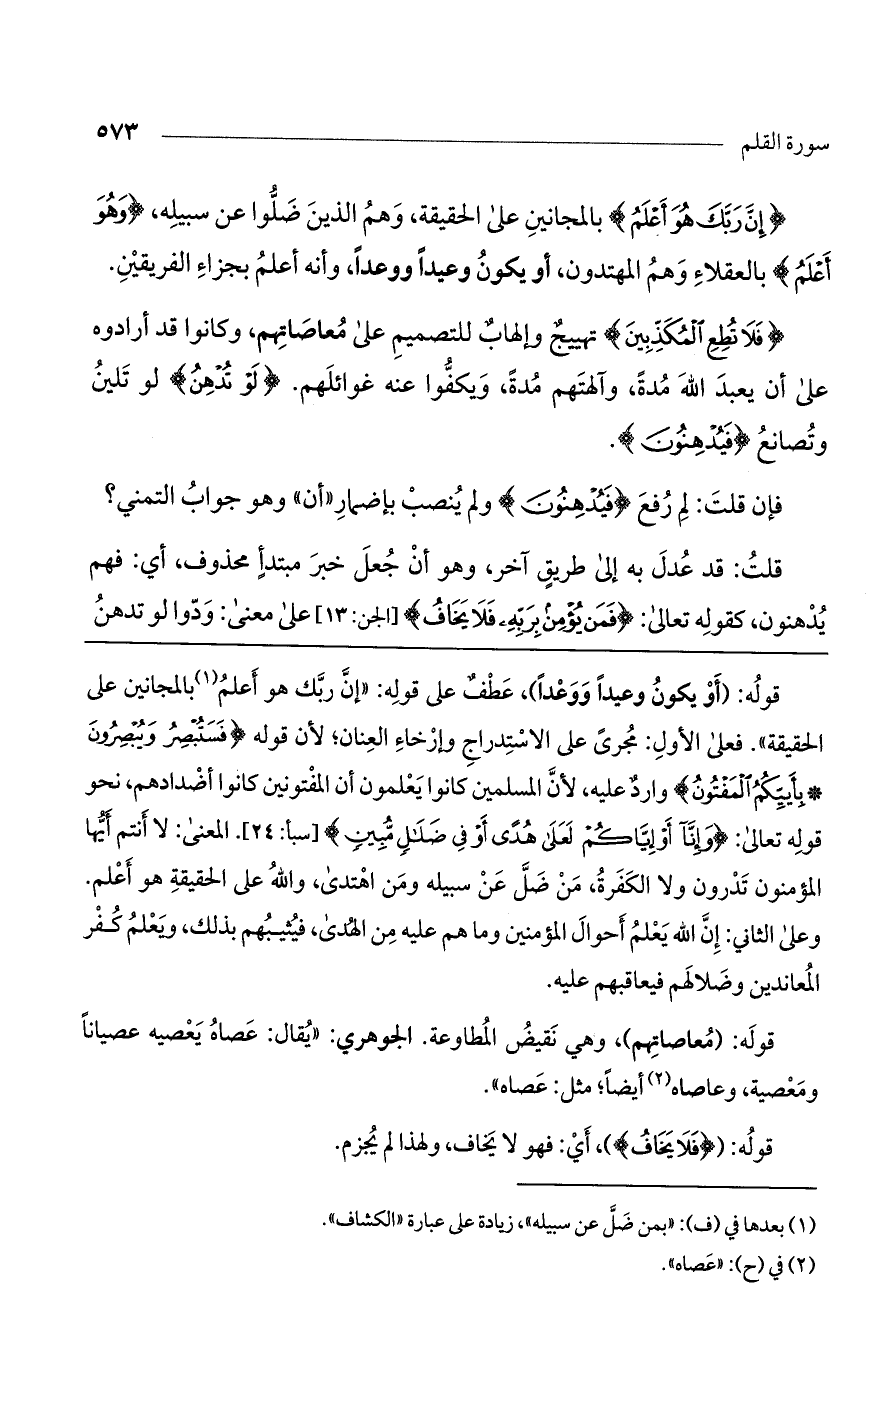 سورة القلم ٥٧٣
﴿إِنَّ رَبَّكَ هُوَ أَعْلَمُ﴾ بالمجانينِ على الحقيقة، وَهمُ الذينَ ضَلُّوا عن سبيلِه، ﴿وَهُوَ
أَعْلَمُ﴾ بالعقلاءِ وَهمُ المهتدون، أو يكونُ وعيداً ووعداً، وأنه أعلمُ بجزاءِ الفريقيْنِ.
﴿فَلَا تُطِعِ ٱلْمُكَذِّبِينَ﴾ تهييجٌ وإلهابٌ للتصميمِ على مُعاصَاتِهم، وكانوا قد أرادوه
على أن يعبدَ اللهَ مُدةً، وآلهتَهم مُدةً، وَيكفُّوا عنه غوائلَهم. ﴿لَوْ تُدْهِنُ﴾ لو تَلينُ
وتُصانعُ ﴿فَيُدْهِنُونَ﴾.
فإن قلتَ: لِم رُفعَ ﴿فَيُدْهِنُونَ﴾ ولم يُنصبْ بإضمارِ «أن» وهو جوابُ التمني؟
قلتُ: قد عُدلَ به إلى طريقٍ آخر، وهو أنْ جُعلَ خبرَ مبتدأٍ محذوف، أي: فهم
يُدْهنون، كقولِه تعالىٰ: ﴿فَمَن يُؤْمِنۢ بِرَبِّهِۦ فَلَا يَخَافُ﴾ [الجن: ١٣] علىٰ معنىٰ: وَدّوا لو تدهنُ
قولُه: (أَوْ يكونُ وعيداً وَوَعْداً)، عَطْفٌ على قولِه: «إنَّ ربَّك هو أَعلمُ(١) بالمجانين على
الحقيقة». فعلىٰ الأولِ: مُجرىً على الاسْتِدراجِ وإرْخاءِ العِنان؛ لأن قوله ﴿فَسَتُبْصِرُ وَيُبْصِرُونَ
* بِأَييِّكُمُ ٱلْمَفْتُونُ﴾ واردٌ عليه، لأنَّ المسلمين كانوا يَعْلمون أن المفْتونين كانوا أضْدادهم، نحو
قولِه تعالىٰ: ﴿وَإِنَّآ أَوْ إِيَّاكُمْ لَعَلَىٰ هُدًى أَوْ فِى ضَلَـٰلٍ مُّبِينٍ﴾ [سبأ: ٢٤]. المعنىٰ: لا أَنتم أَيُّها
المؤمنون تَدْرون ولا الكَفَرةُ، مَنْ ضَلَّ عَنْ سبيله ومَن اهْتدىٰ، واللهُ على الحقيقةِ هو أَعْلم.
وعلىٰ الثاني: إنَّ الله يَعْلمُ أَحوالَ المؤمنين وما هم عليه مِن الهُدىٰ، فيُثيبُهم بذلك، ويَعْلمُ كُفْر
المُعاندين وضَلالهَم فيعاقبهم عليه.
قولَه: (مُعاصاتِهم)، وهي نَقيضُ المُطاوعة. الجوهري: «يُقال: عَصاهُ يَعْصيه عصياناً
ومَعْصية، وعاصاه(٢) أيضاً؛ مثل: عَصاه».
قولُه: (﴿فَلَا يَخَافُ﴾)، أَيْ: فهو لا يَخاف، ولهذا لم يُجزم.
(١) بعدها في (ف): «بمن ضَلَّ عن سبيله»، زيادة على عبارة «الكشاف».
(٢) في (ح): «عَصاه».